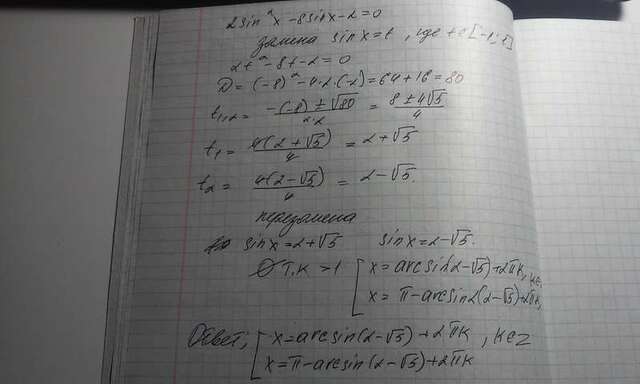 2sin²x-8sinx-2=0
Замена sinx=t, где t∈[-1;1]
2t²-8t-2=0
D=(-8)²-4·2·(-2)=64+16=80
t₁,₂ = (-(-8)±√80)/(2·2) = (8±4√5)/4
t₁ = 4(2+√5)/4 = 2+√5
t₂ = 4(2-√5)/4 = 2-√5.
sinx=2+√5 sinx=2-√5.
∅ т.к >1 [x=arcsin(2-√5)+2πk,
[x=π-arcsin(2-√5)+2πk,
Ответ: [x=arcsin(2-√5)+2πk
[x=π-arcsin(2-√5)+2πk , k∈z